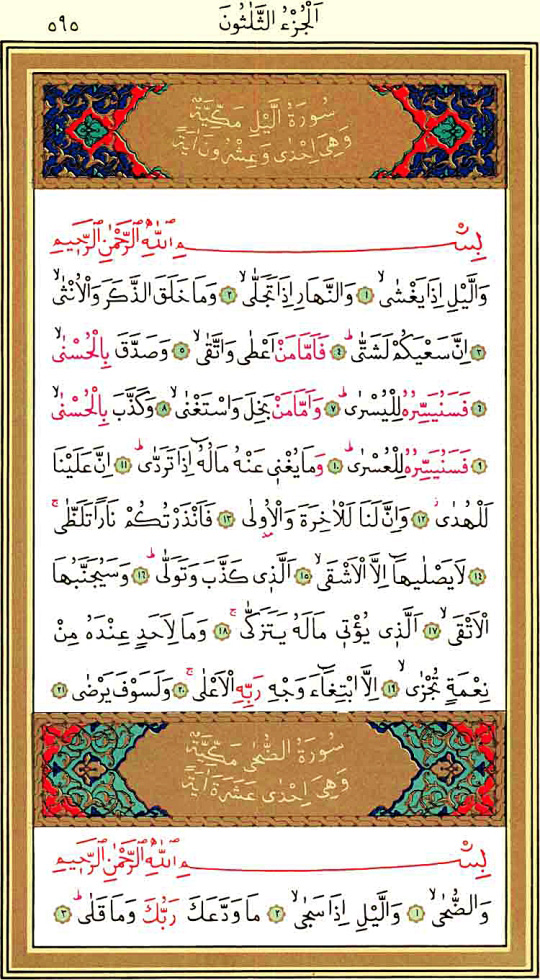 اَلْجُزْءُ الثَّلٰثُونَ
٥٩٥
سُورَةُ الَّيْلِ مَكِّيَّةٌ
وَهِىَ اِحْدٰى وَعِشْرُونَ اٰيَةً
بِسْمِ اللّٰهِ الرَّحْمٰنِ الرَّحِيمِ
وَالَّيْلِ اِذَا يَغْشٰىۙ ١ وَالنَّهَارِ اِذَا تَجَلّٰىۙ ٢ وَمَا خَلَقَ الذَّكَرَ وَالْاُنْثٰىۙ
٣ اِنَّ سَعْيَكُمْ لَشَتّٰىۜ ٤ فَاَمَّا مَنْ اَعْطٰى وَاتَّقٰىۙ ٥ وَصَدَّقَ بِالْحُسْنٰىۙ
٦ فَسَنُيَسِّرُهُ لِلْيُسْرٰىۜ ٧ وَاَمَّا مَنْ بَخِلَ وَاسْتَغْنٰىۙ ٨ وَكَذَّبَ بِالْحُسْنٰىۙ
٩ فَسَنُيَسِّرُهُ لِلْعُسْرٰىۜ ١٠ وَمَا يُغْنِى عَنْهُ مَالُهُٓ اِذَا تَرَدّٰىۜ ١١ اِنَّ عَلَيْنَا
لَلْهُدٰىۘ ١٢ وَاِنَّ لَنَا لَلْاٰخِرَةَ وَالْاُولٰى ١٣ فَاَنْذَرْتُكُمْ نَارًا تَلَظّٰىۚ
١٤ لَا يَصْلٰيهَٓا اِلَّا الْاَشْقٰىۙ ١٥ اَلَّذِى كَذَّبَ وَتَوَلّٰىۜ ١٦ وَسَيُجَنَّبُهَا
الْاَتْقٰىۙ ١٧ اَلَّذِى يُؤْتِى مَالَهُ يَتَزَكّٰىۚ ١٨ وَمَا لِاَحَدٍ عِنْدَهُ مِنْ
نِعْمَةٍ تُجْزٰىۙ ١٩ اِلَّا ابْتِغَٓاءَ وَجْهِ رَبِّهِ الْاَعْلٰىۚ ٢٠ وَلَسَوْفَ يَرْضٰى ٢١
سُورَةُ الضُّحٰى مَكِّيَّةٌ
وَهِىَ اِحْدٰى عَشَرَةَ اٰيَةً
بِسْمِ اللّٰهِ الرَّحْمٰنِ الرَّحِيمِ
وَالضُّحٰىۙ ١ وَالَّيْلِ اِذَا سَجٰىۙ ٢ مَا وَدَّعَكَ رَبُّكَ وَمَا قَلٰىۜ ٣